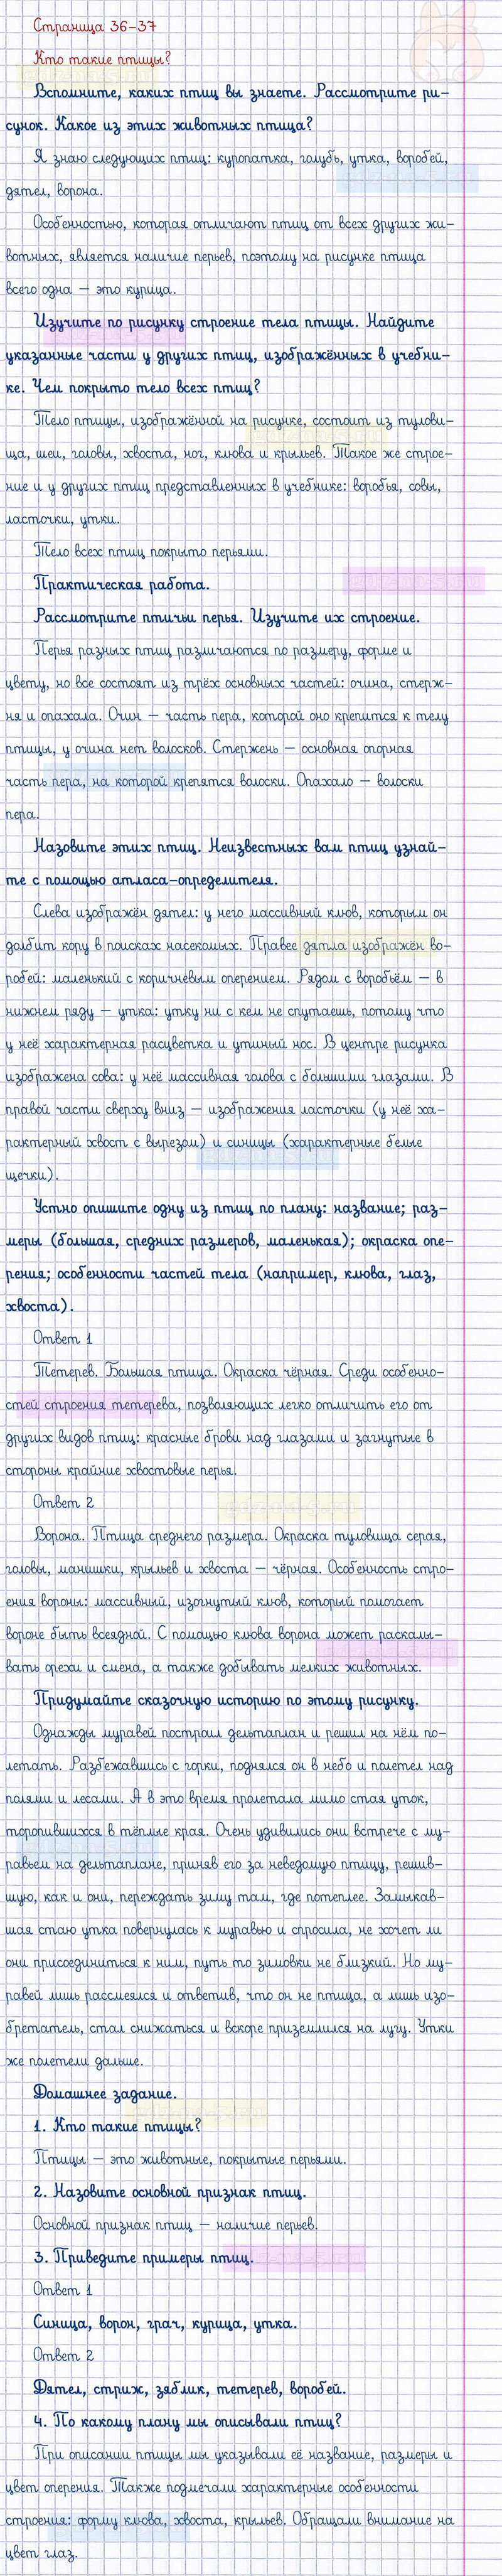 Страница 36-37
Кто такие птицы?
Вспомните, каких птиц вы знаете. Рассмотрите ри-
сунок. Какое из этих животных птица?
Я знаю следующих птиц: куропатка, голубь, утка, воробей,
дятел, ворона.
Особенностью, которая отличают птиц от всех других жи-
вотных, является наличие перьев, поэтому на рисунке птица
всего одна – это курица.
Изучите по рисунку строение тела птицы. Найдите
указанные части у других птиц, изображённых в учебни-
ке. Чем покрыто тело всех птиц?
Тело птицы, изображённой на рисунке, состоит из тулови-
ща, шеи, головы, хвоста, ног, клюва и крыльев. Такое же строе-
ние и у других птиц представленных в учебнике: воробья, совы,
ласточки, утки.
Тело всех птиц покрыто перьями.
Практическая работа.
Рассмотрите птичьи перья. Изучите их строение.
Перья разных птиц различаются по размеру, форме и
цвету, но все состоят из трёх основных частей: очина, стерж-
ня и опахала. Очин – часть пера, которой оно крепится к телу
птицы, у очина нет волосков. Стержень – основная опорная
часть пера, на которой крепятся волоски. Опахало – волоски
пера.
Назовите этих птиц. Неизвестных вам птиц узнай-
те с помощью атласа-определителя.
Слева изображён дятел: у него массивный клюв, которым он
долбит кору в поисках насекомых. Правее дятла изображён во-
робей: маленький с коричневым оперением. Рядом с воробьём – в
нижнем ряду – утка: утку ни с кем не спутаешь, потому что
у неё характерная расцветка и утиный нос. В центре рисунка
изображена сова: у неё массивная голова с большими глазами. В
правой части сверху вниз – изображения ласточки (у неё ха-
рактерный хвост с вырезом) и синицы (характерные белые
щечки).
Устно опишите одну из птиц по плану: название; раз-
меры (большая, средних размеров, маленькая); окраска опе-
рения; особенности частей тела (например, клюва, глаз,
хвоста).
Ответ 1
Тетерев. Большая птица. Окраска чёрная. Среди особенно-
стей строения тетерева, позволяющих легко отличить его от
других видов птиц: красные брови над глазами и загнутые в
стороны крайние хвостовые перья.
Ответ 2
Ворона. Птица среднего размера. Окраска туловища серая,
головы, манишки, крыльев и хвоста – чёрная. Особенность стро-
ения вороны: массивный, изогнутый клюв, который помогает
вороне быть всеядной. С помощью клюва ворона может раскалы-
вать орехи и семена, а также добывать мелких животных.
Придумайте сказочную историю по этому рисунку.
Однажды муравей построил дельтаплан и решил на нём по-
летать. Разбежавшись с горки, поднялся он в небо и полетел над
полями и лесами. А в это время пролетала мимо стая уток,
торопившихся в тёплые края. Очень удивились они встрече с му-
равьем на дельтаплане, приняв его за неведомую птицу, решив-
шую, как и они, переждать зиму там, где потеплее. Замыкав-
шая стаю утка повернулась к муравью и спросила, не хочет ли
они присоединиться к ним, путь то зимовки не близкий. Но му-
равей лишь рассмеялся и ответив, что он не птица, а лишь изо-
бретатель, стал снижаться и вскоре приземлился на лугу. Утки
же полетели дальше.
Домашнее задание.
1. Кто такие птицы?
Птицы – это животные, покрытые перьями.
2. Назовите основной признак птиц.
Основной признак птиц – наличие перьев.
3. Приведите примеры птиц.
Ответ 1
Синица, ворон, грач, курица, утка.
Ответ 2
Дятел, стриж, зяблик, тетерев, воробей.
4. По какому плану мы описывали птиц?
При описании птицы мы указывали её название, размеры и
цвет оперения. Также подмечали характерные особенности
строения: форму клюва, хвоста, крыльев. Обращали внимание на
цвет глаз.